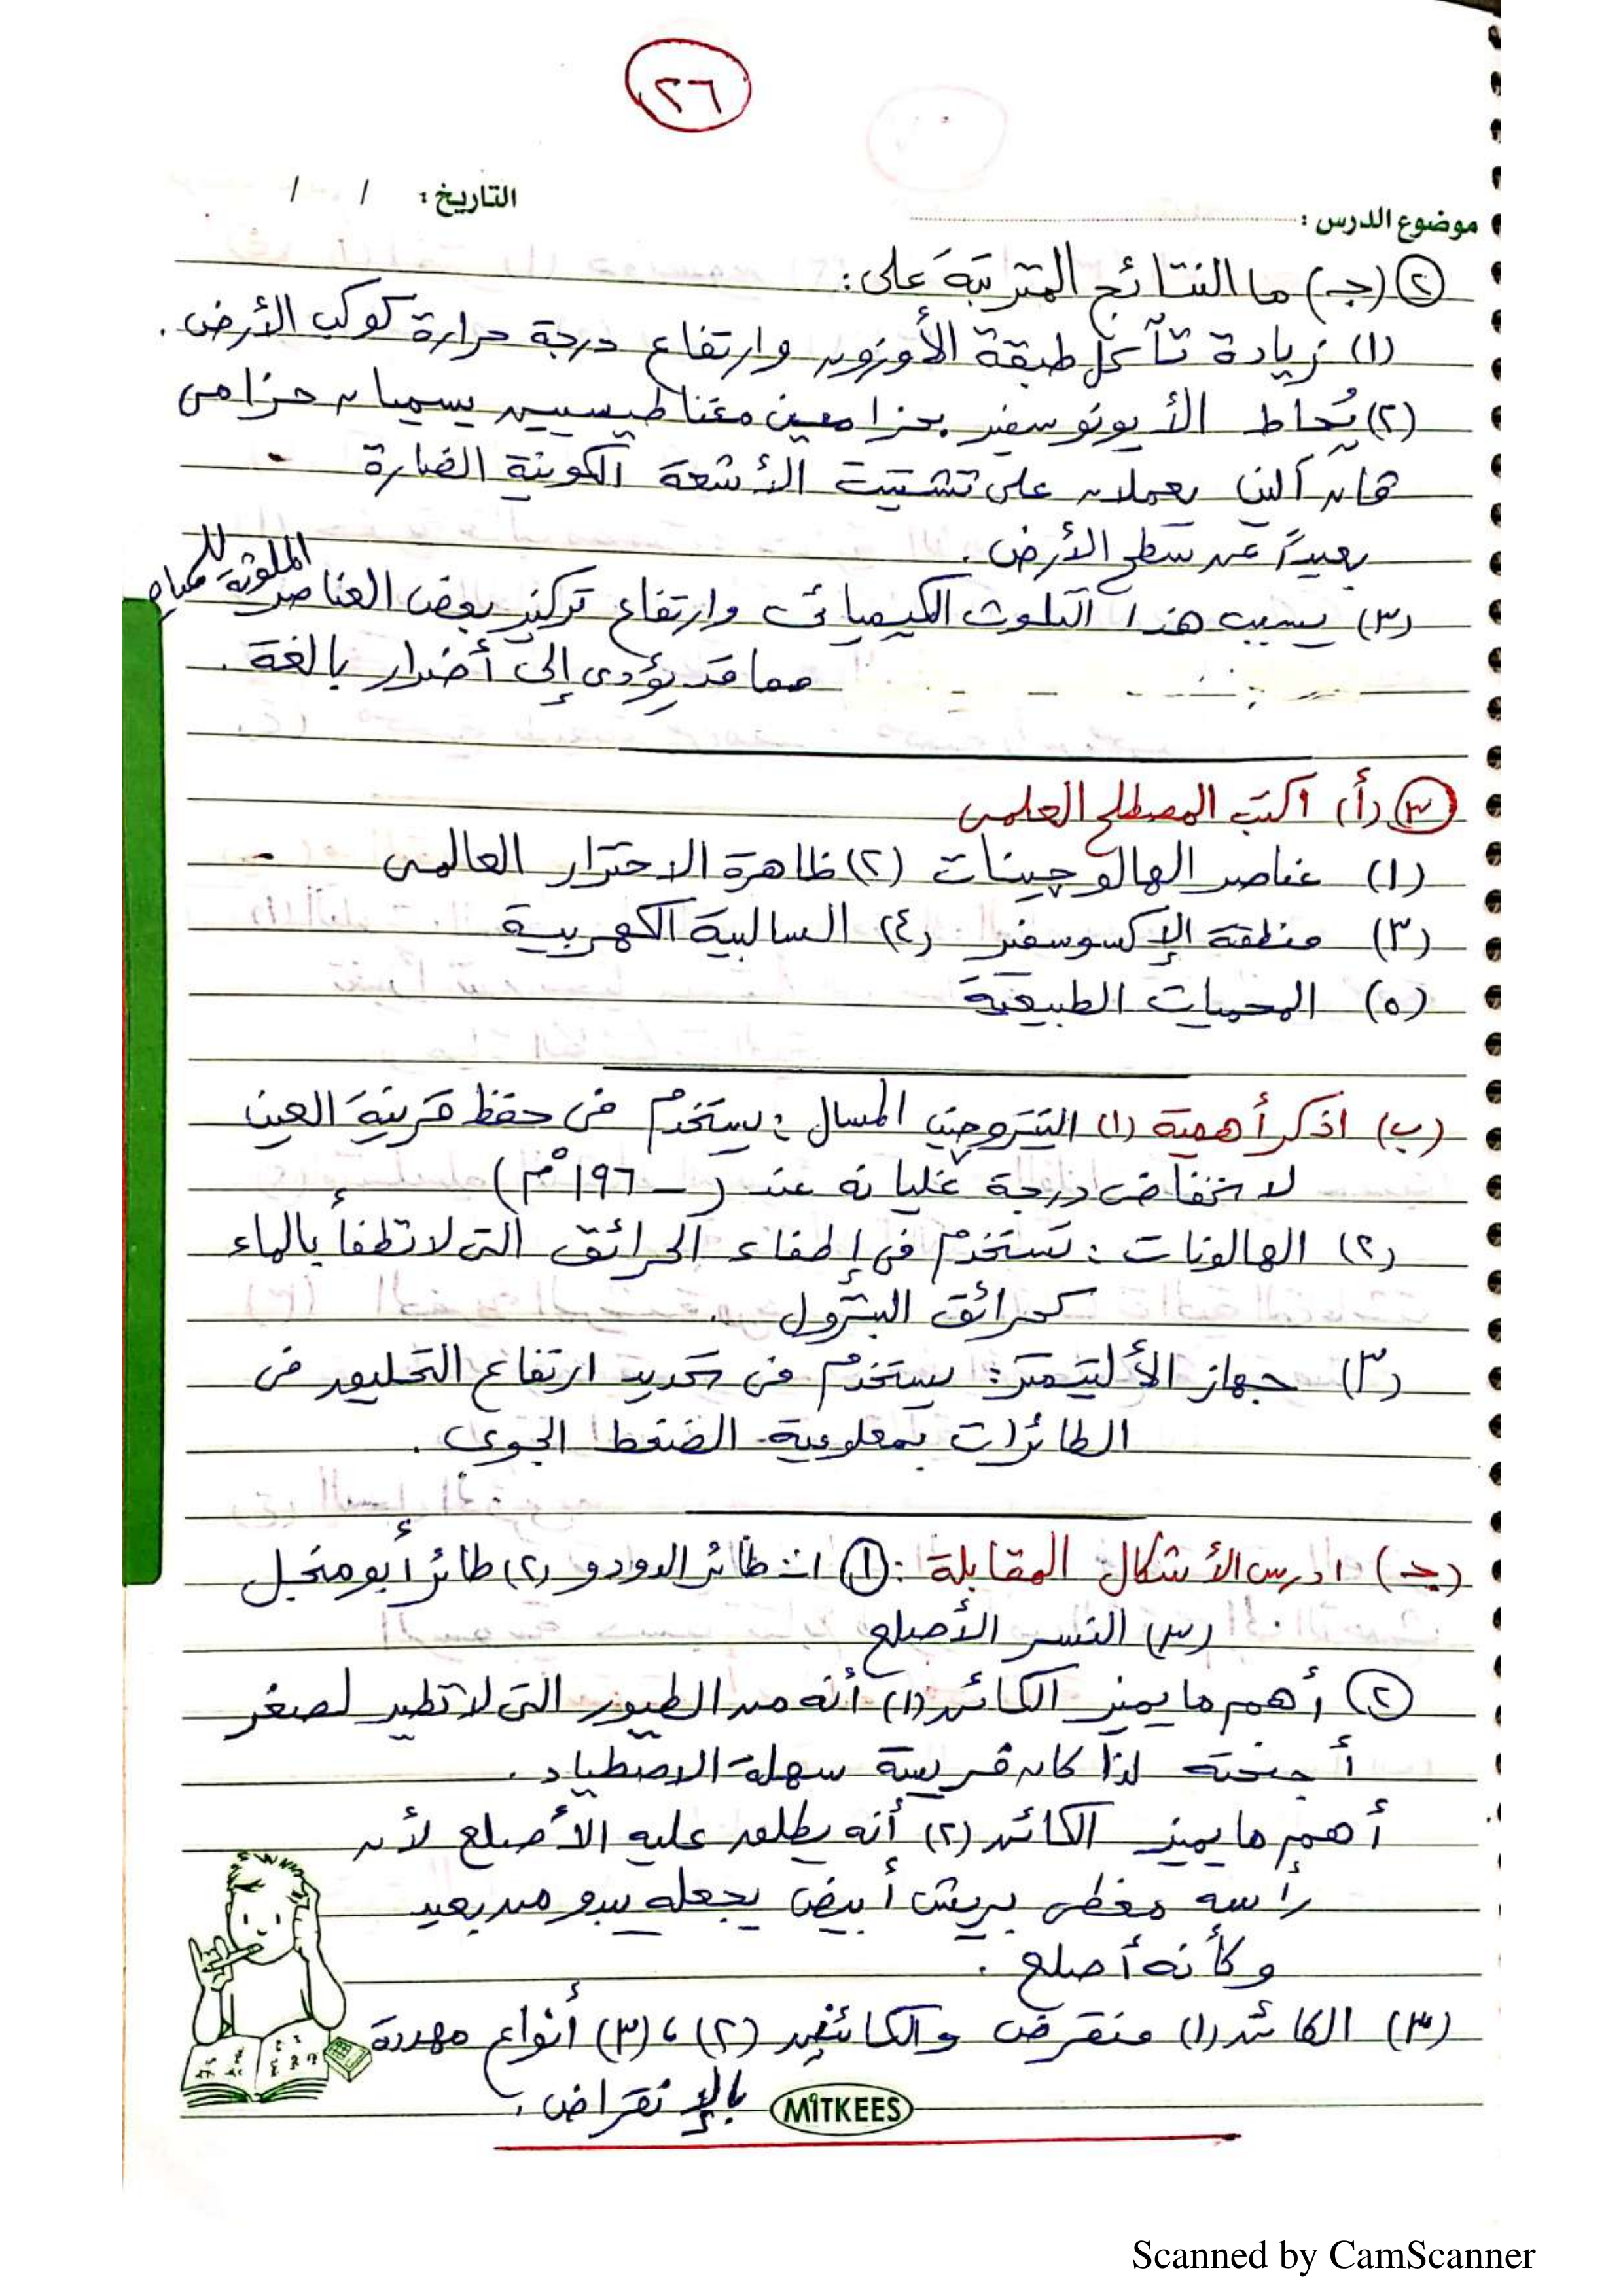 ٢٦
التاريخ : / /
موضوع الدرس :
٢ (جـ) ما النتائج المترتبة على :
(١) زيادة تآكل طبقة الأوزون وارتفاع درجة حرارة كوكب الأرض .
(٢) يُحاط الأيونوسفير بحزامين مغناطيسيين يسميان حزامى
فان آلين يعملان على تشتيت الأشعة الكونية الضارة
بعيداً عن سطح الأرض .
(٣) يسبب هذا التلوث الكيميائى وارتفاع تركيز بعض العناصر الملوثة للمياه
مما قد يؤدى إلى أضرار بالغة .
٣ (أ) اكتب المصطلح العلمى
(١) عناصر الهالوجينات (٢) ظاهرة الاحترار العالمى
(٣) منطقة الإكسوسفير (٤) السالبية الكهربية
(٥) المحميات الطبيعية
(ب) اذكر أهمية (١) النيتروجين المسال : يستخدم فى حفظ قرنية العين
لانخفاض درجة غليانه عند (-١٩٦°م)
(٢) الهالونات : تستخدم فى إطفاء الحرائق التى لا تطفأ بالماء
كحرائق البترول .
(٣) جهاز الألتيمتر : يستخدم فى تحديد ارتفاع التحليق فى
الطائرات بمعلومية الضغط الجوى .
(جـ) ادرس الأشكال المقابلة : ١ طائر الدودو (٢) طائر أبو منجل
(٣) النسر الأصلع
٢ أهم ما يميز الكائن (١) أنه من الطيور التى لا تطير لصغر
أجنحته لذا كان فريسة سهلة الاصطياد .
أهم ما يميز الكائن (٢) أنه يطلق عليه الأصلع لأن
رأسه مغطى بريش أبيض يجعله يبدو من بعيد
وكأنه أصلع .
(٣) الكائن (١) منقرض والكائنين (٢) ، (٣) أنواع مهددة
بالإنقراض .
MITKEES
Scanned by CamScanner